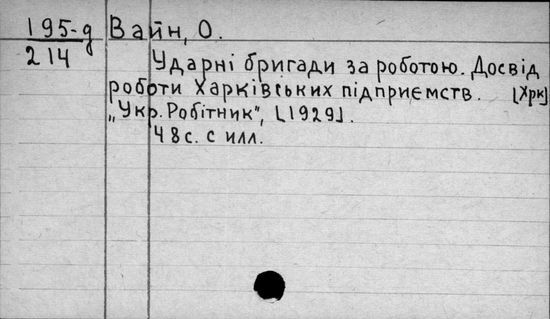 195-д Вайн, О.
214
Ударні бригади за роботою. Досвід
роботи Харківських підприємств. [Хрк]
„Укр. Робітник", [1929].
48 с. с илл.